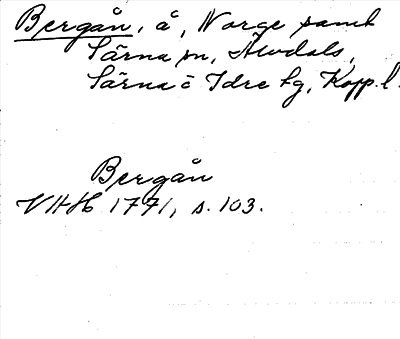 Bergån, å, Norge samt
Särna sn, Älvdals,
Särna o Idre tg, Kopp. l.
Bergån
VHH 1771, s. 103.